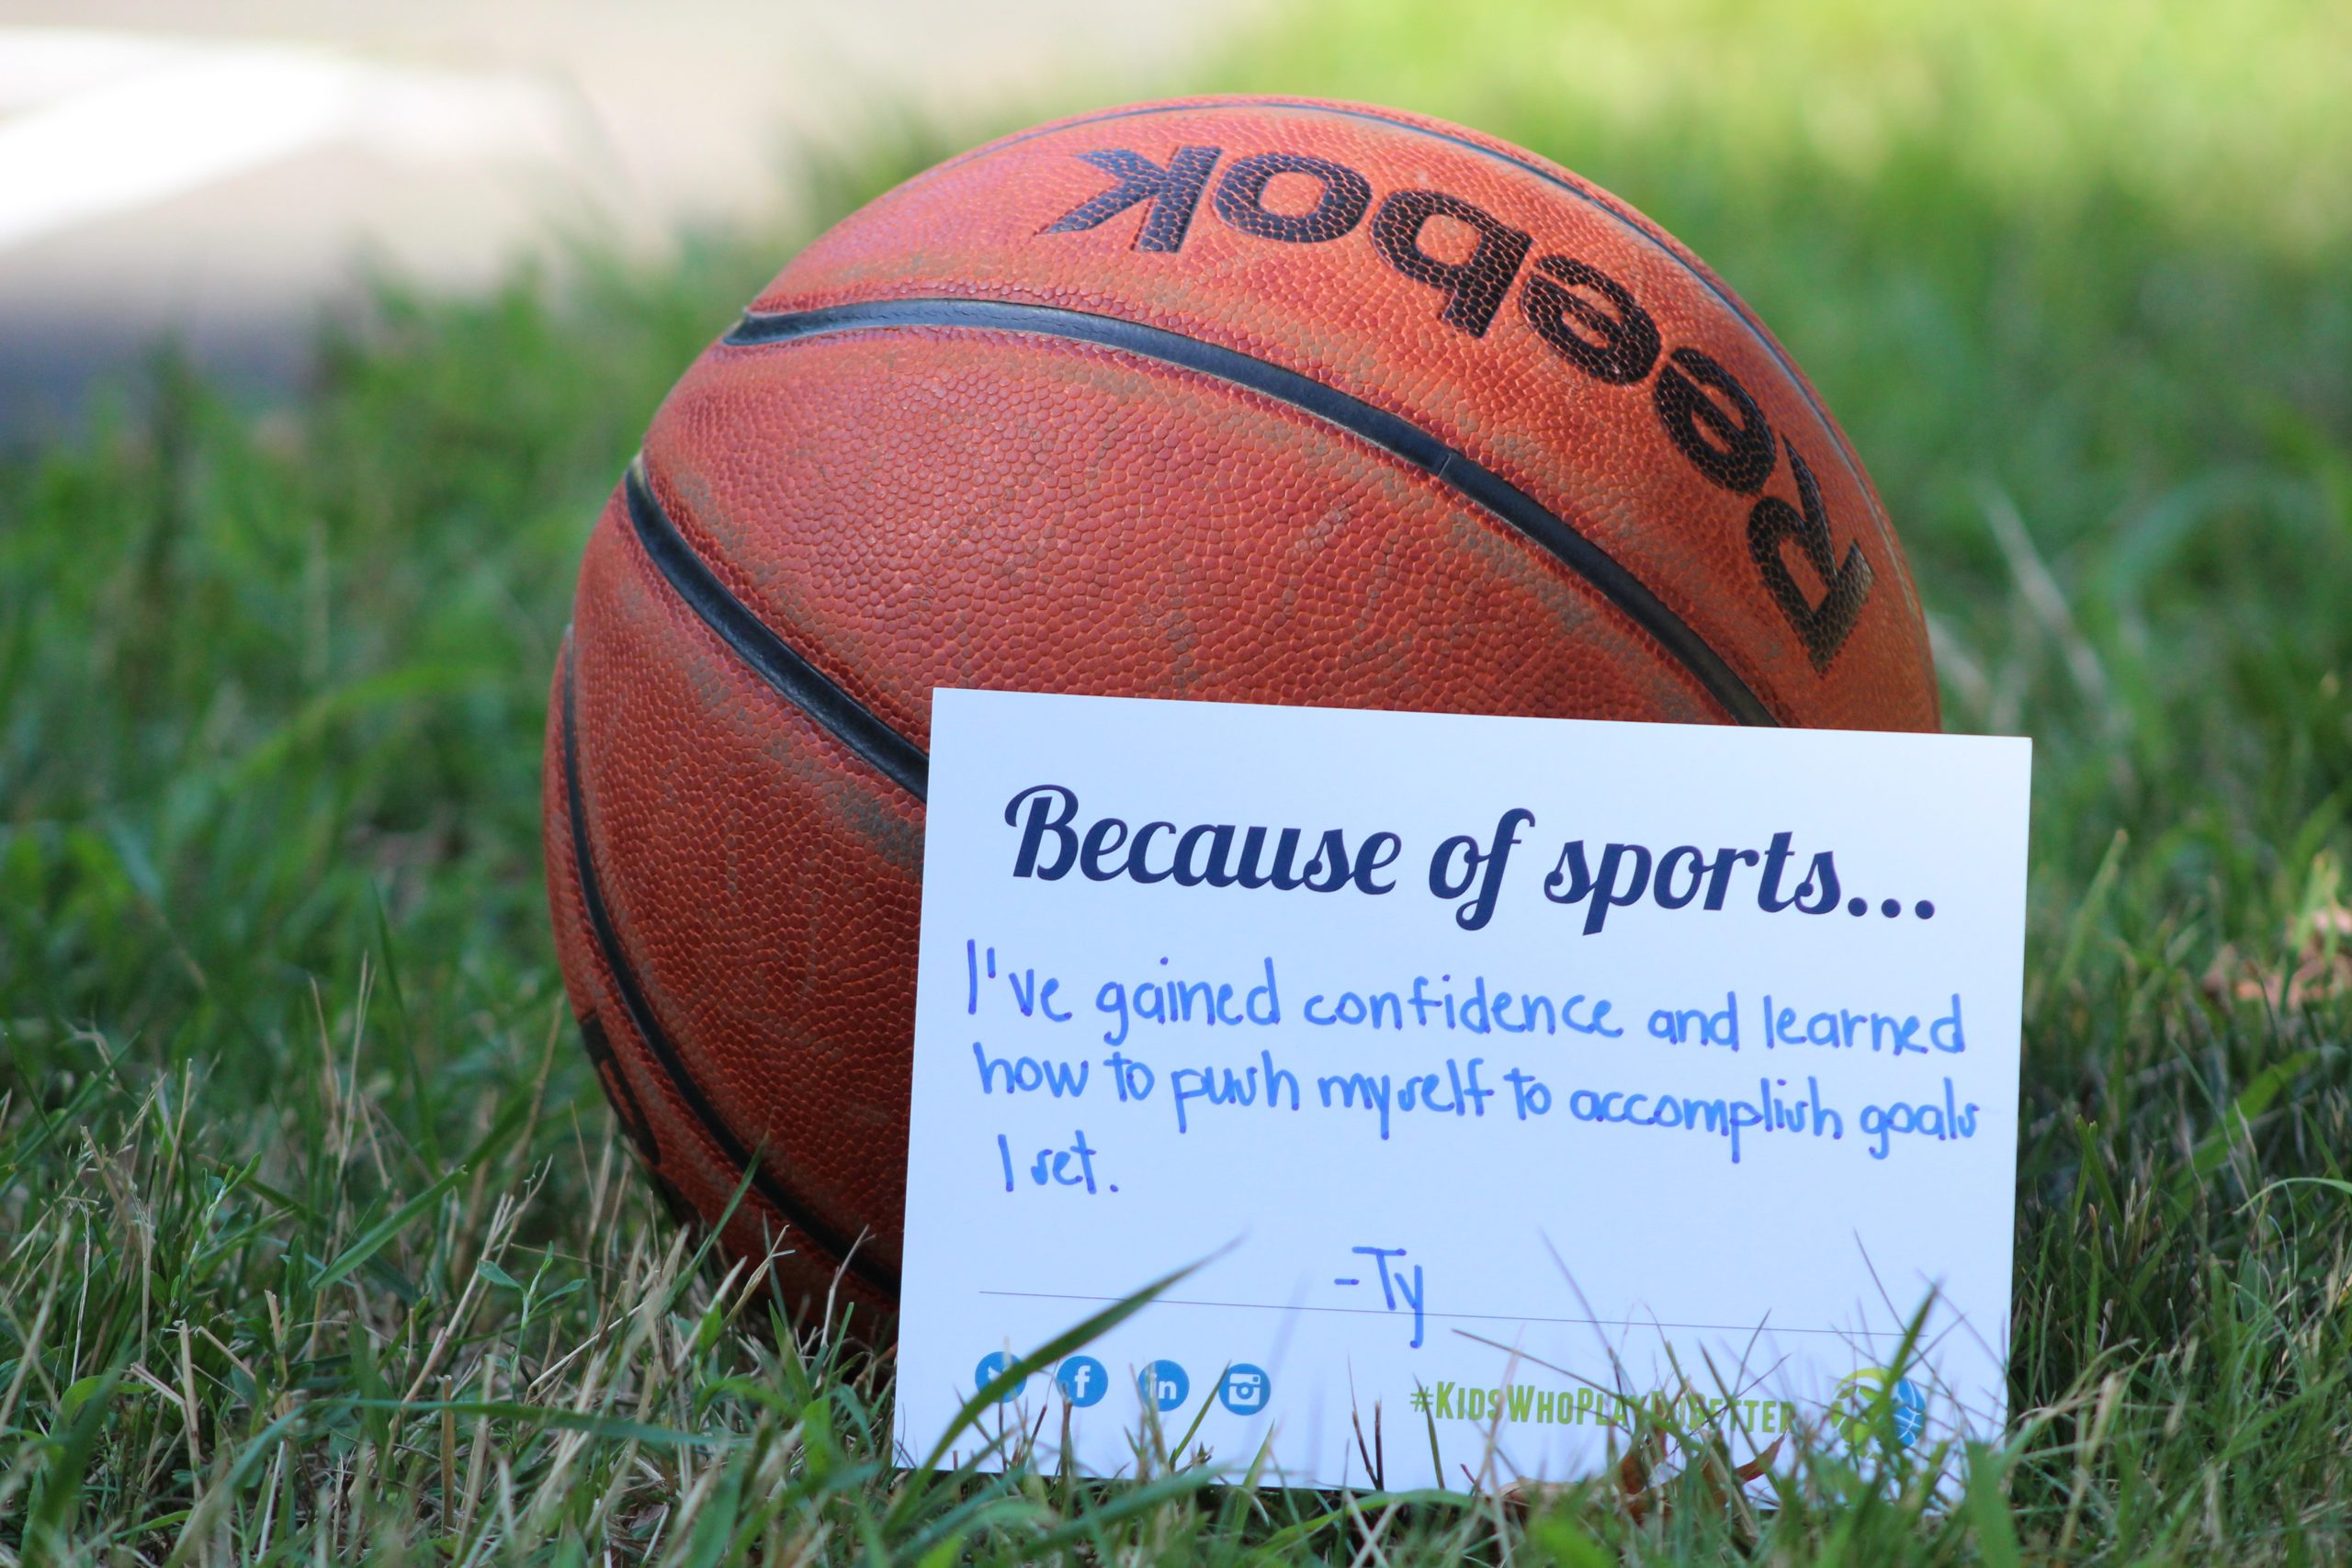 Reebok
Because of sports...
I've gained confidence and learned
how to push myself to accomplish goals
I set.
-Ty
f
in
#KIDSWHOPLAYDOBETTER